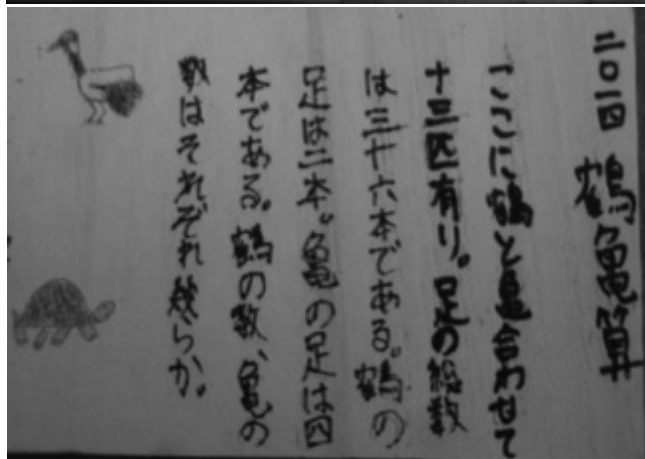 二〇一四 鶴亀算
ここに鶴と亀合わせて
十三匹有り。足の総数
は三十六本である。鶴の
足は二本。亀の足は四
本である。鶴の数、亀の
数はそれぞれ幾らか。